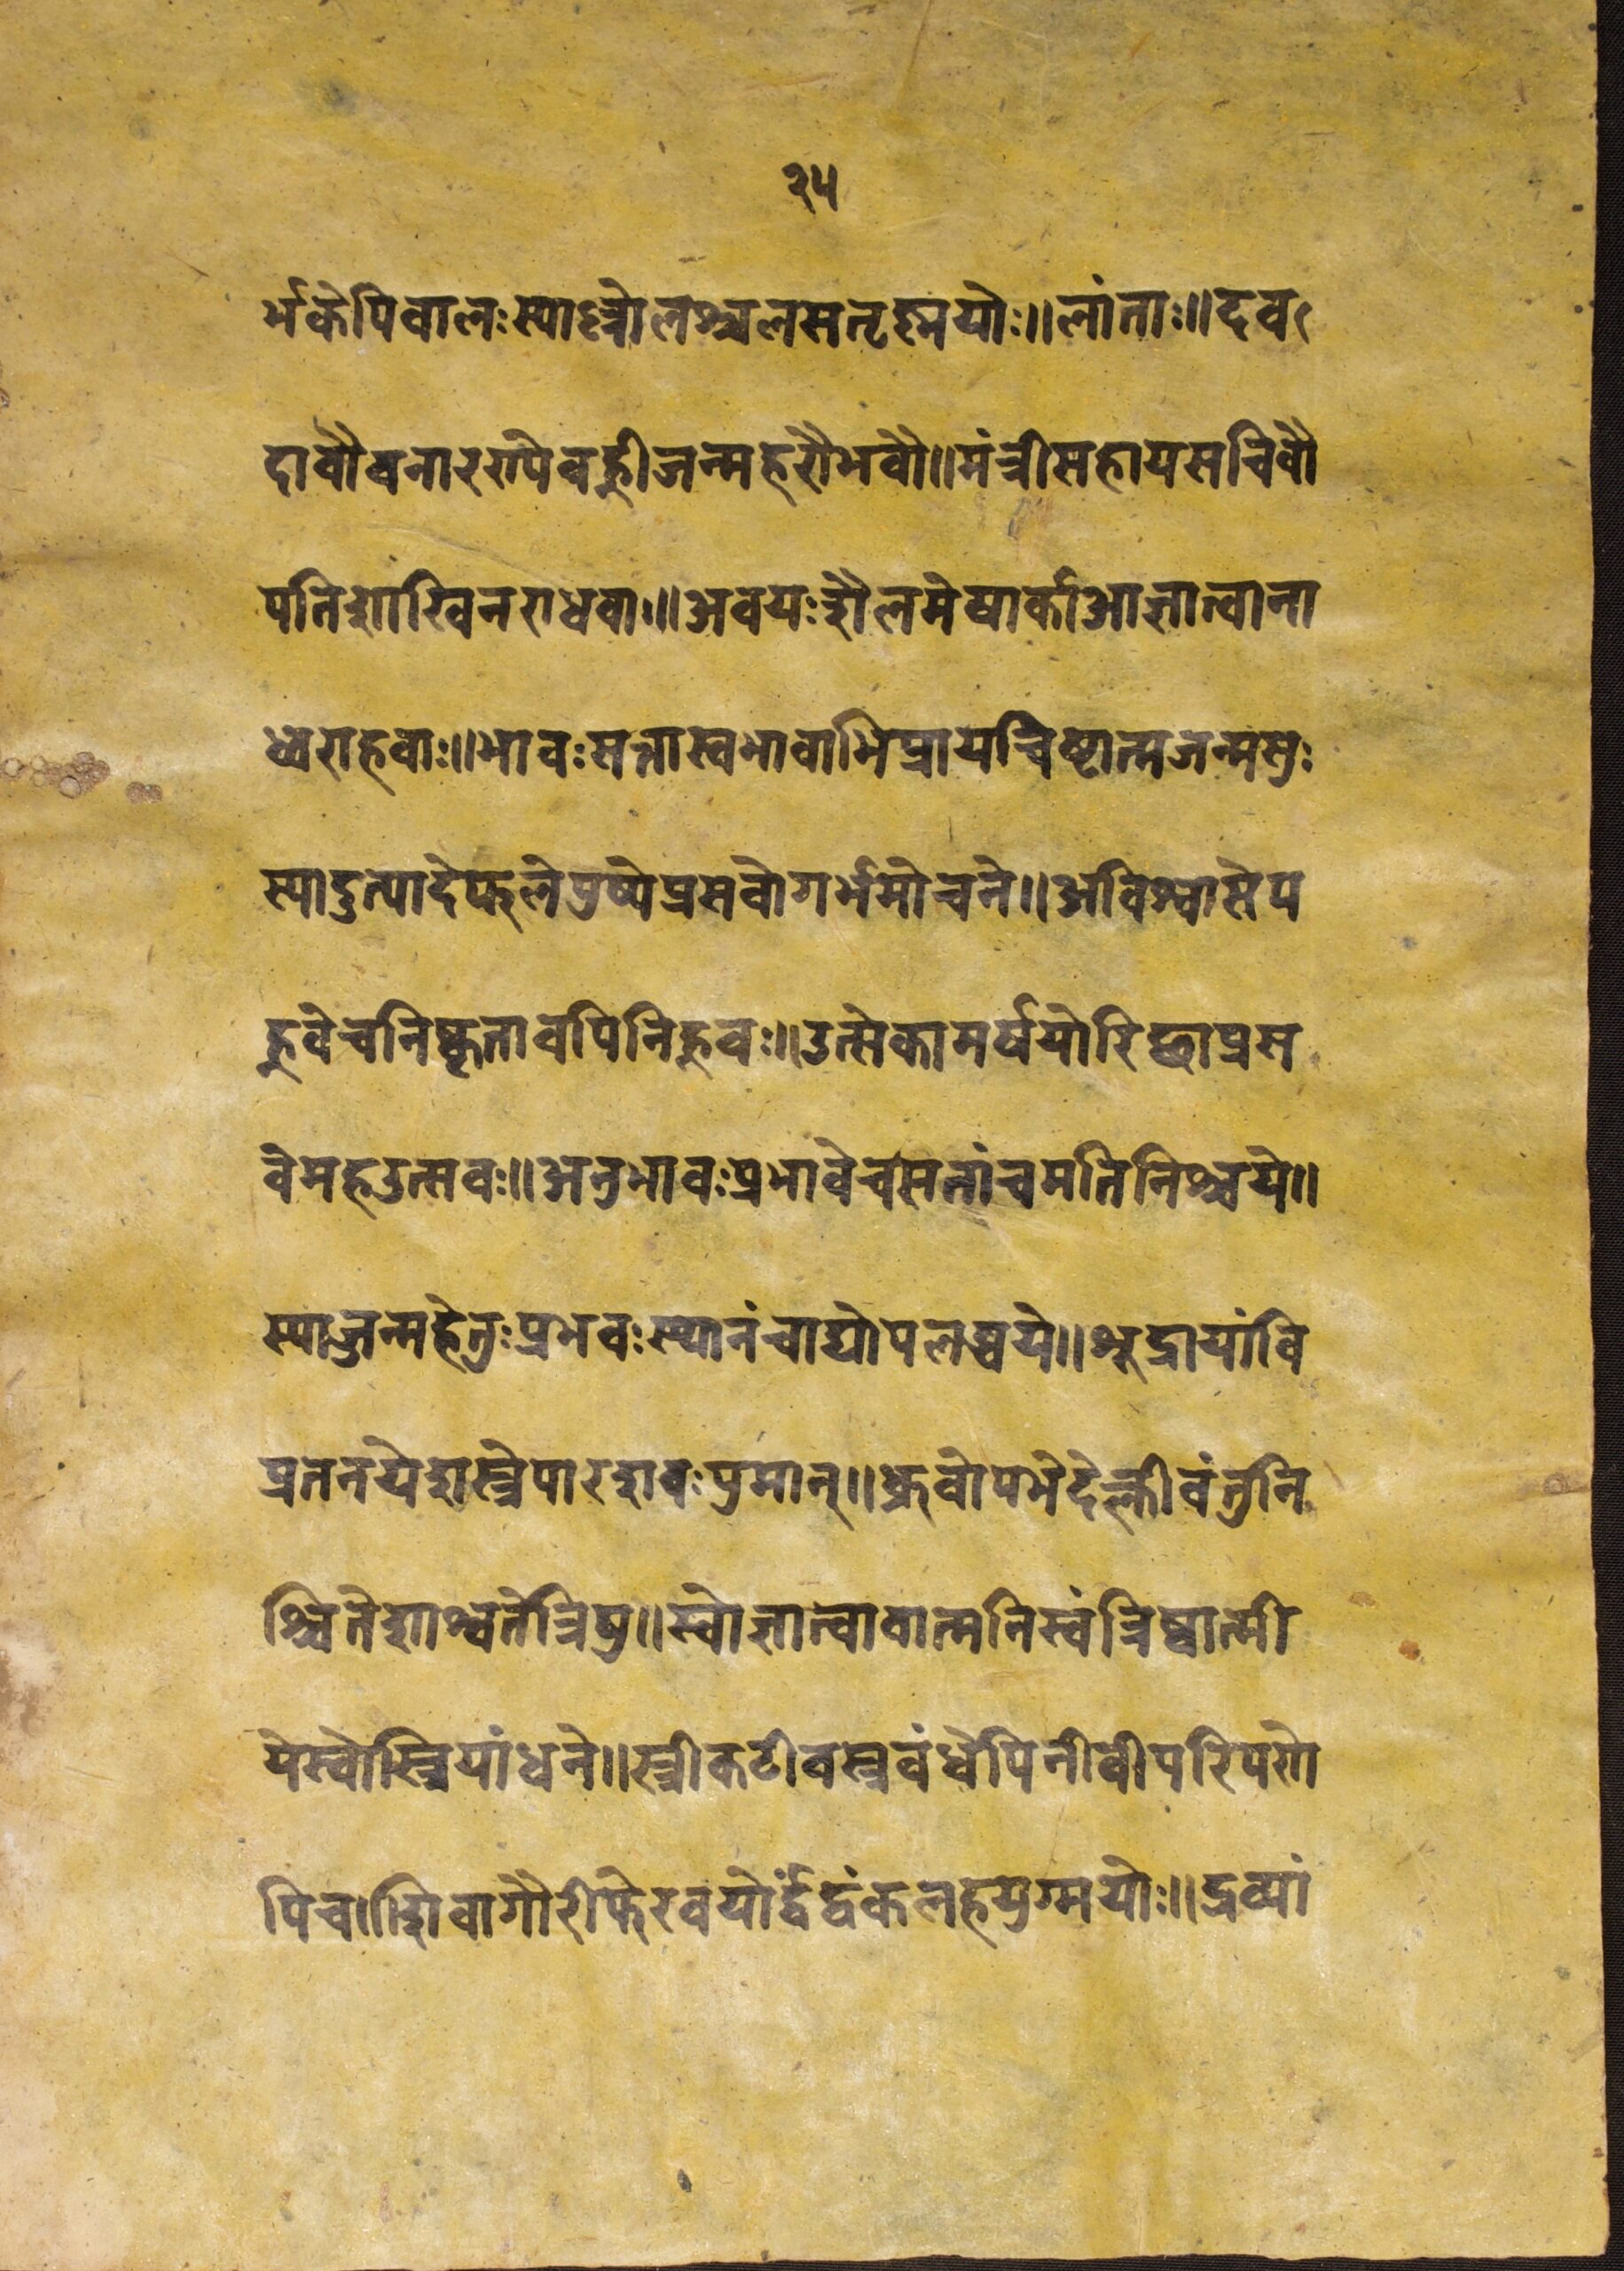 २५
र्भकेपिवालःस्यात्त्रोलश्चलसतृष्णयोः॥लांताः॥दव
दावौवनारण्येवह्नीजन्महरौभवौ॥मंत्रीसहायसचिवौ
पतिशाखिनराधवाः॥अवयःशैलमेषार्काआज्ञात्वाना
ध्वराहवाः॥भावःसत्तास्वभावाभिप्रायचेष्टात्मजन्मसुः
स्यादुत्पादेफलेपुष्पेप्रसवोगर्भमोचने॥अविश्वासेप
ह्नुवेचनिष्कृतावपिनिह्नुवः॥उत्सेकामर्षयोरिछाप्रस
वेमहउत्सवः॥अनुभावःप्रभावेचसतांचमतिनिश्चये॥
स्याज्जन्महेतुःप्रभवःस्थानंचाद्योपलब्धये॥श्रूद्रायांवि
प्रतनयेशस्त्रेपारशवःपुमान्॥ध्रुवोपभेदेक्लीवंतुनि
श्चितेशाश्वतेत्रिषु॥स्वोज्ञात्वावात्मनिस्वंत्रिष्वात्मी
येस्वोस्त्रियांधने॥स्त्रीकटीवस्त्रवंधेपिनीवीपरिपणे
पिच॥शिवागौरीफेरवयोर्द्वंद्वंकलहयुग्मयोः॥द्रव्यां